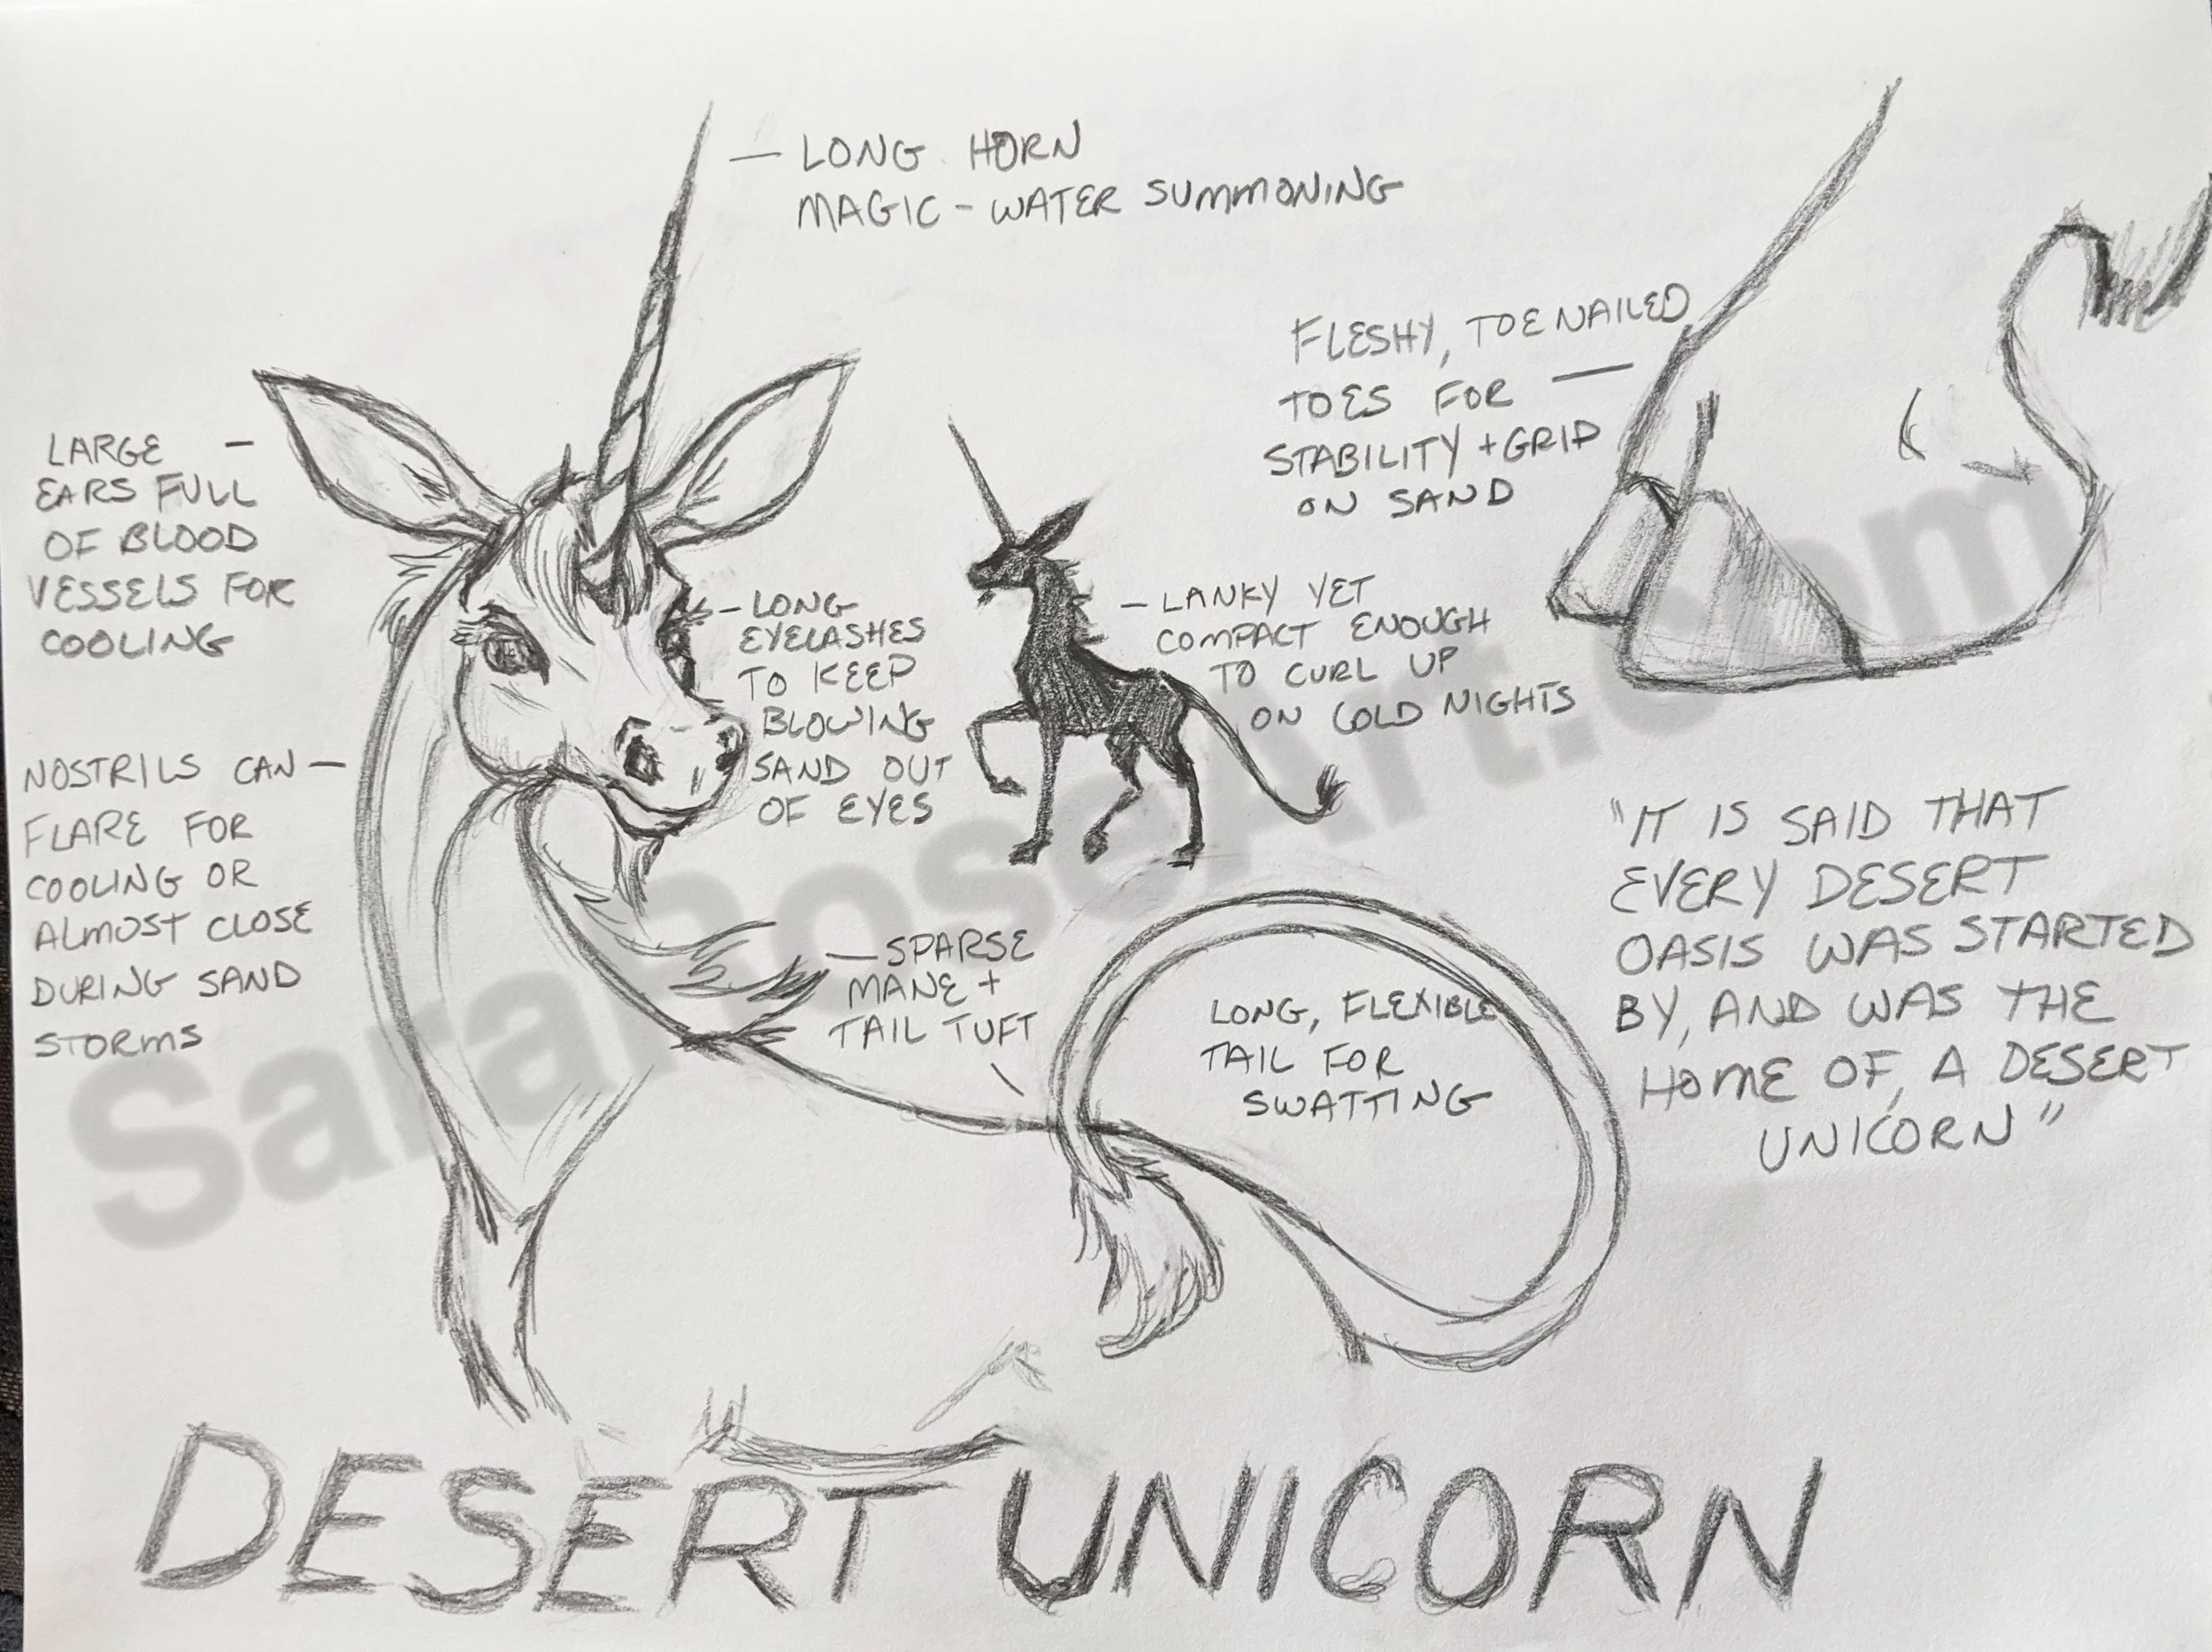 — LONG HORN
MAGIC - WATER SUMMONING
LARGE —
EARS FULL
OF BLOOD
VESSELS FOR
COOLING
NOSTRILS CAN —
FLARE FOR
COOLING OR
ALMOST CLOSE
DURING SAND
STORMS
— LONG
EYELASHES
TO KEEP
BLOWING
SAND OUT
OF EYES
— LANKY YET
COMPACT ENOUGH
TO CURL UP
ON COLD NIGHTS
FLESHY, TOENAILED
TOES FOR —
STABILITY + GRIP
ON SAND
— SPARSE
MANE +
TAIL TUFT
LONG, FLEXIBLE
TAIL FOR
SWATTING
"IT IS SAID THAT
EVERY DESERT
OASIS WAS STARTED
BY, AND WAS THE
HOME OF, A DESERT
UNICORN"
DESERT UNICORN
SaraRoseArt.com